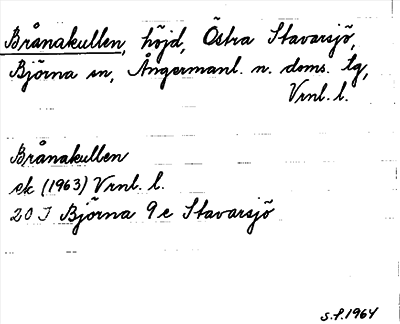 Brånakullen, höjd, Östra Stavarsjö,
Björna sn, Ångermanl. n. doms. tg,
Vrnl. l.
Brånakullen
ek (1963) Vrnl. l.
20 J Björna 9 e Stavarsjö
S.F. 1964